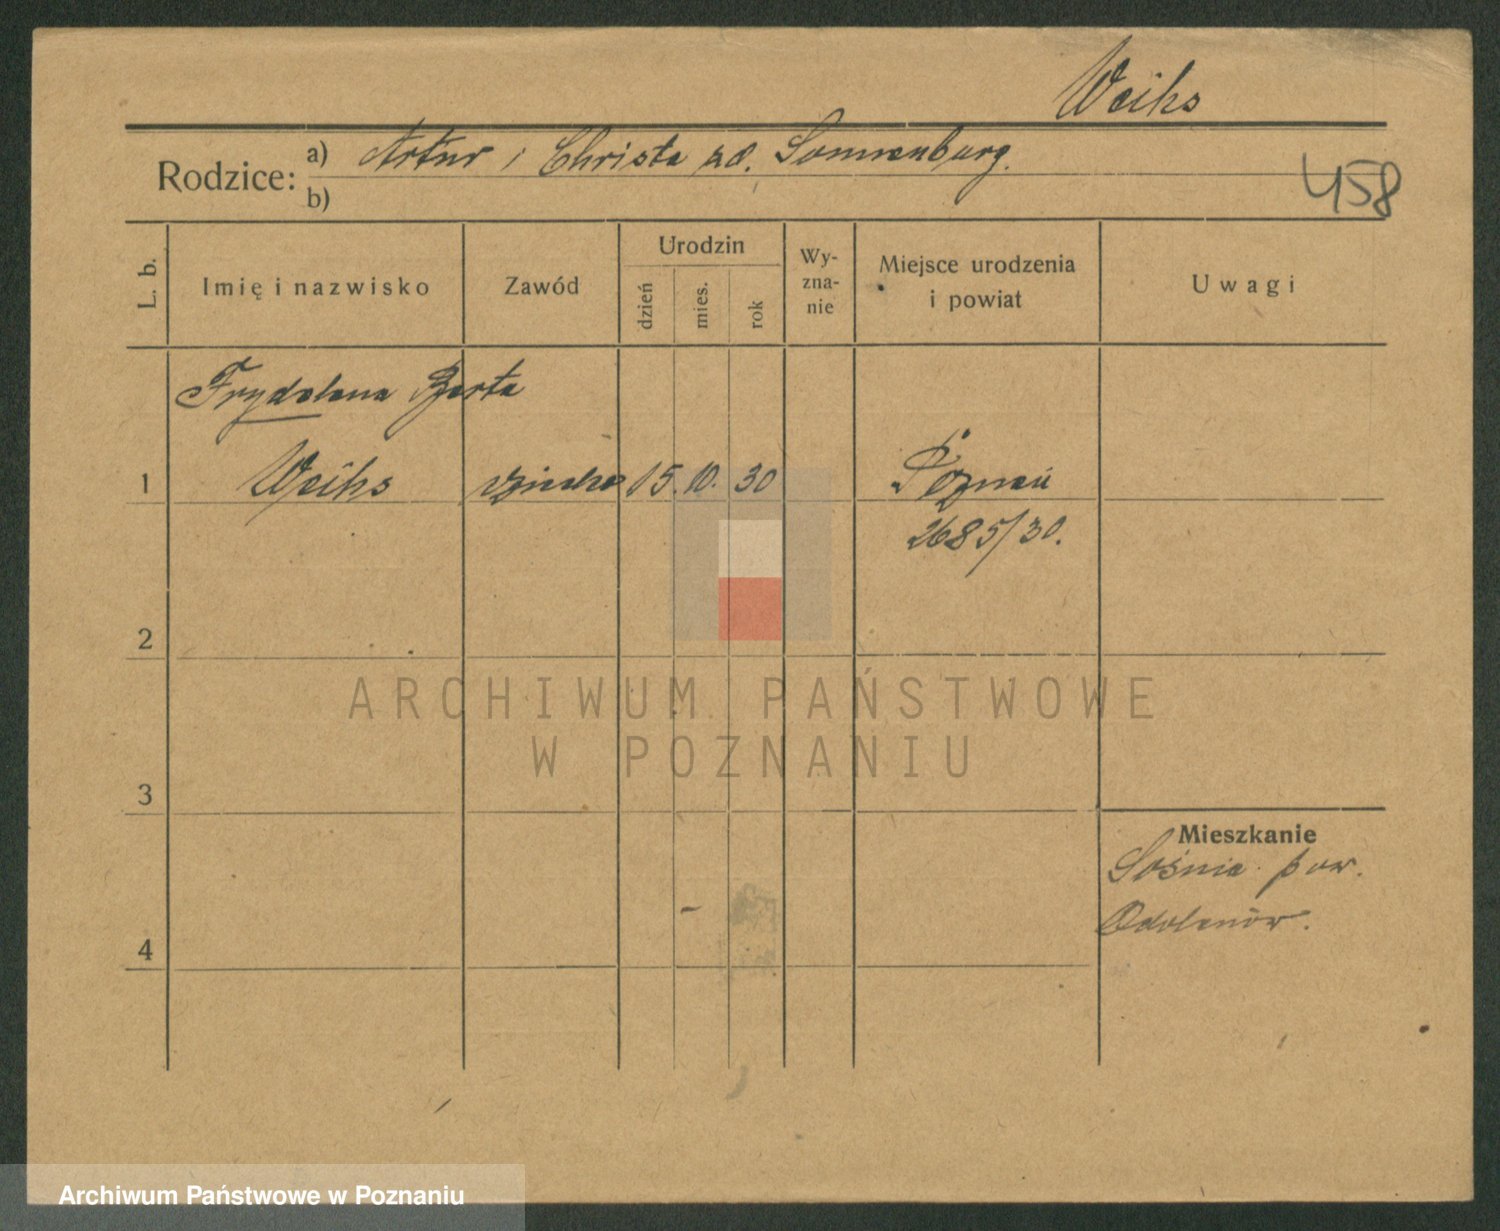 Weihs
Rodzice: a) Artur i Christa zd. Sonnenburg.
b)
458
L. b.
Imię i nazwisko
Zawód
Urodzin
dzień
mies.
rok
Wy-
zna-
nie
Miejsce urodzenia
i powiat
Uwagi
Frydolena Berta
1 Weihs dziecko 15. 10. 30 Poznań
2685/30.
2
3
4
Mieszkanie
Sośnie pow.
Odolanów.
ARCHIWUM PAŃSTWOWE
W POZNANIU
Archiwum Państwowe w Poznaniu